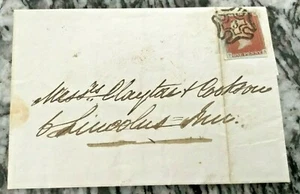 ONE PENNY
Messrs Clayton & Cookson
6 Lincolns Inn.